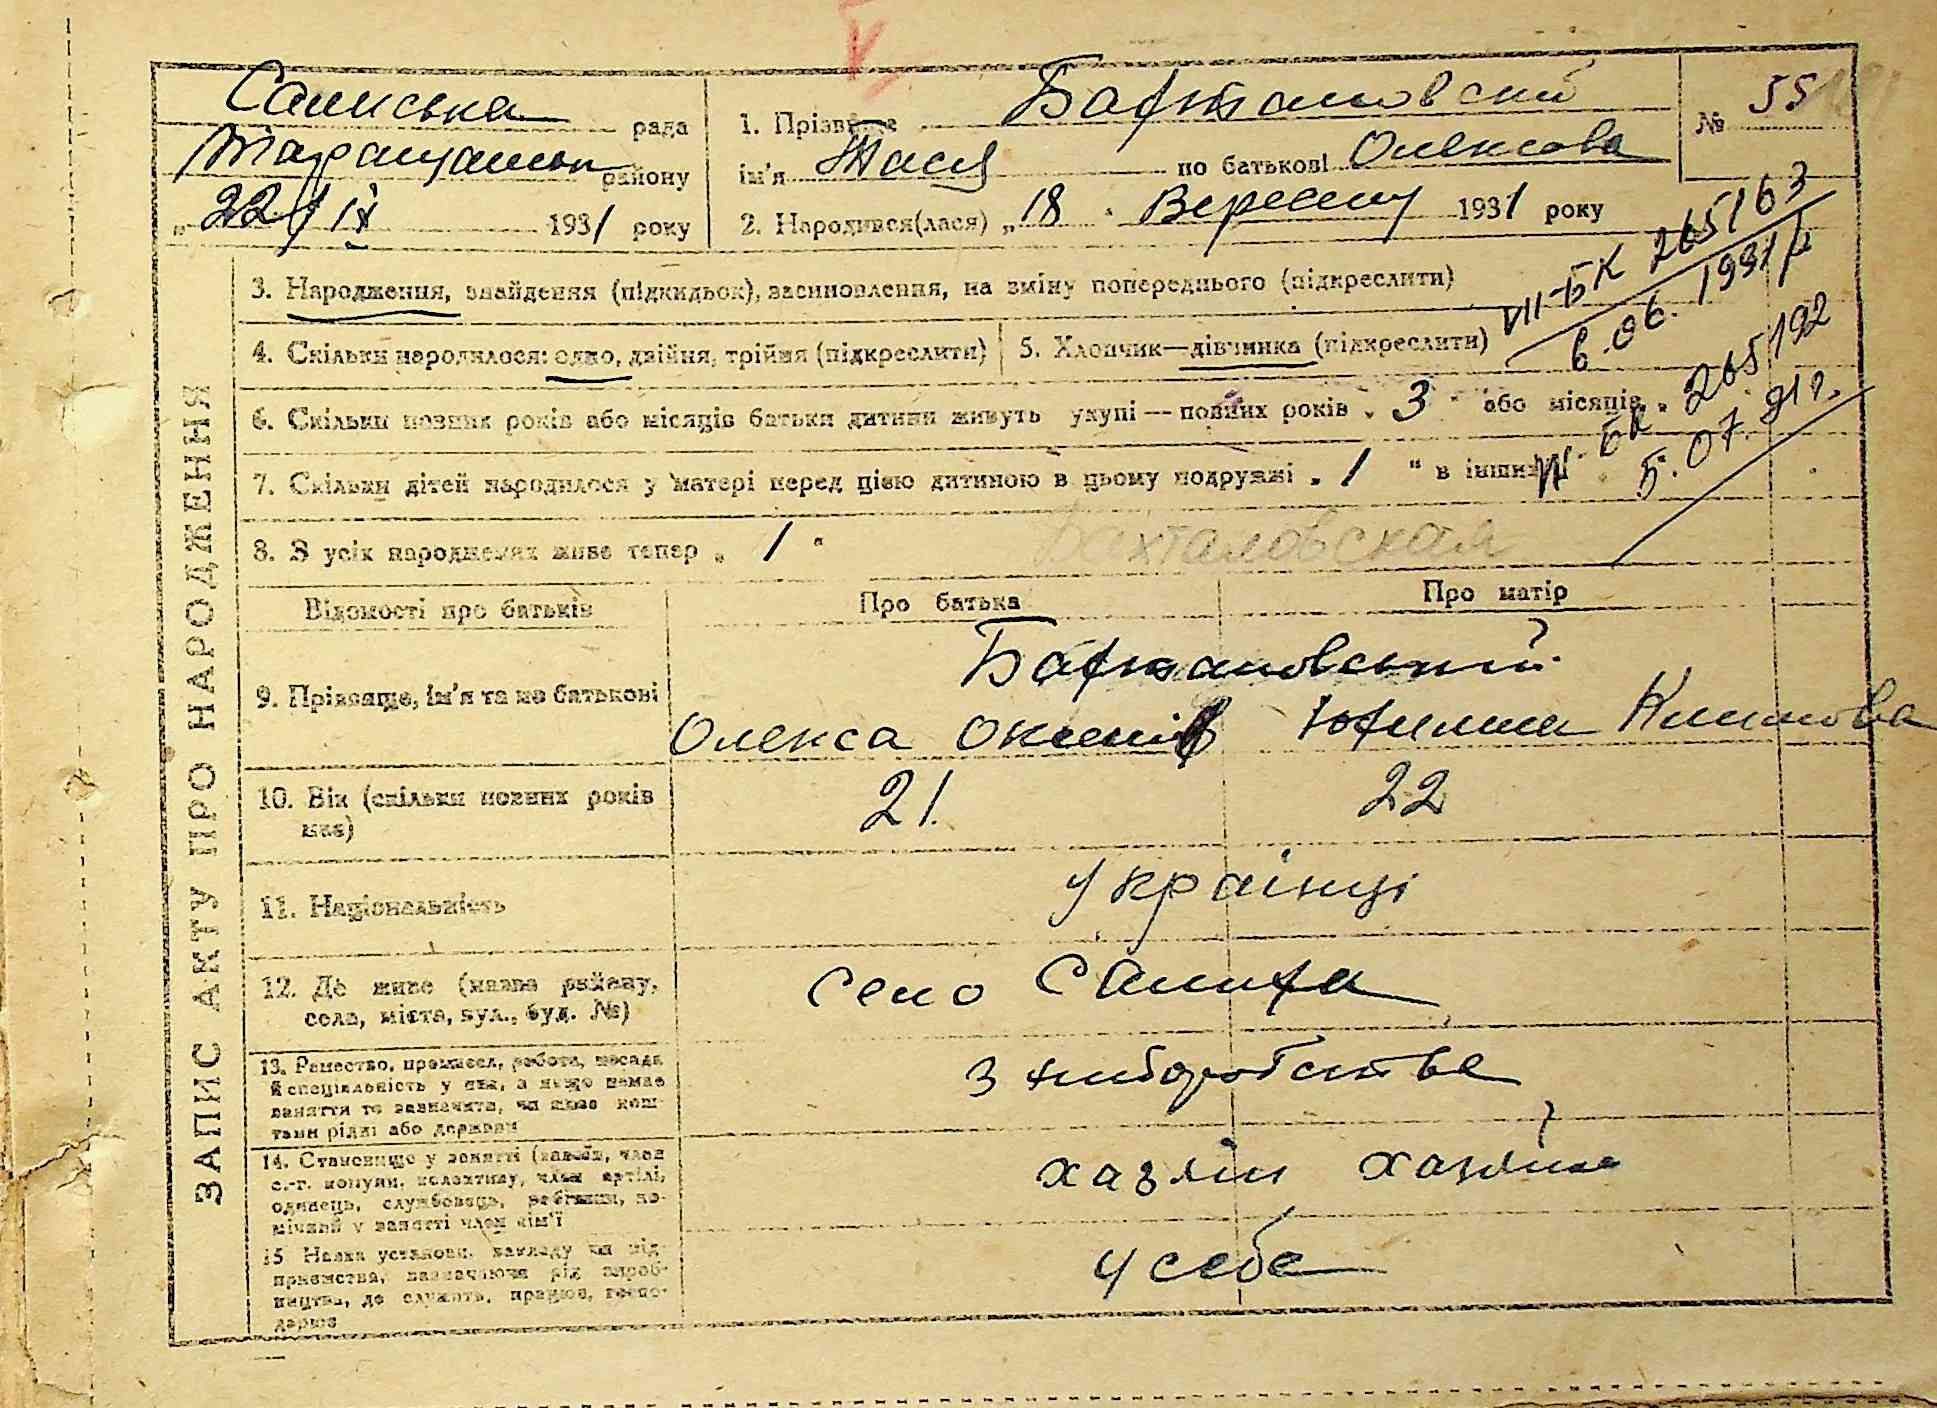 рада
району
" 22/IX 1931 року
1. Прізвище
ім'я Тася по батькові Олексова
№ 55
2. Народився(лася) „18" Вересня 1931 року
3. Народження, знайдення (підкидьок), засиновлення, на зміну попереднього (підкреслити)
VII-БК 265163
6.06.1991р
4. Скільки народилося: одно, двійня, трійня (підкреслити)
5. Хлопчик—дівчинка (підкреслити)
6. Скільки повних років або місяців батьки дитини живуть укупі — повних років „ 3 " або місяців „
БК 265192
5.07.91г.
7. Скільки дітей народилося у матері перед цією дитиною в цьому подружжі „ 1 " в інших
8. З усіх народжених живе тепер „ 1 "
Бахталовская
ЗАПИС АКТУ ПРО НАРОДЖЕННЯ
Відомості про батьків
Про батька
Про матір
9. Прізвище, ім'я та по батькові
Олекса
10. Вік (скільки повних років має)
21.
22
11. Національність
Українці
12. Де живе (назва району,
села, міста, вул., буд. №)
село
13. Ремество, промисел, робота, посада
й спеціальність у них, а якщо немає
заняття то зазначити, чи живе кош-
тами рідні або держави
З хліборобства
14. Становище у занятті (хазяїн, член
с.-г. комуни, колективу, член артілі,
одинець, службовець, робітник, по-
мічний у занятті член сім'ї
хазяїн хазяйка
15 Назва установи, закладу чи під-
приємства, зазначаючи рід вироб-
ництва, де служить, працює, госпо-
дарює
у себе